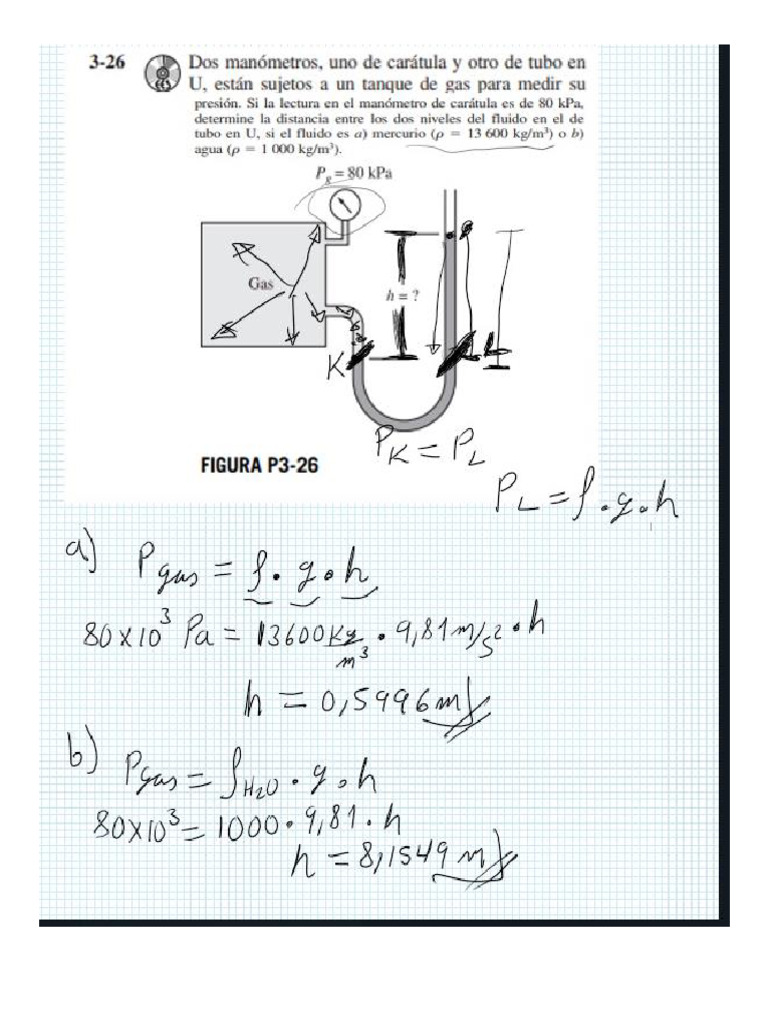 3-26 Dos manómetros, uno de carátula y otro de tubo en
U, están sujetos a un tanque de gas para medir su
presión. Si la lectura en el manómetro de carátula es de 80 kPa,
determine la distancia entre los dos niveles del fluido en el de
tubo en U, si el fluido es a) mercurio (ρ = 13 600 kg/m³) o b)
agua (ρ = 1 000 kg/m³).
Pg = 80 kPa
Gas
h = ?
K
L
PK = PL
FIGURA P3-26
PL = ρ.g.h
a) Pgas = ρ.g.h
80x10³ Pa = 13600 Kg/m³ . 9,81 m/s² . h
h = 0,5996 m
b) Pgas = ρH2O . g . h
80x10³ = 1000 . 9,81 . h
h = 8,1549 m